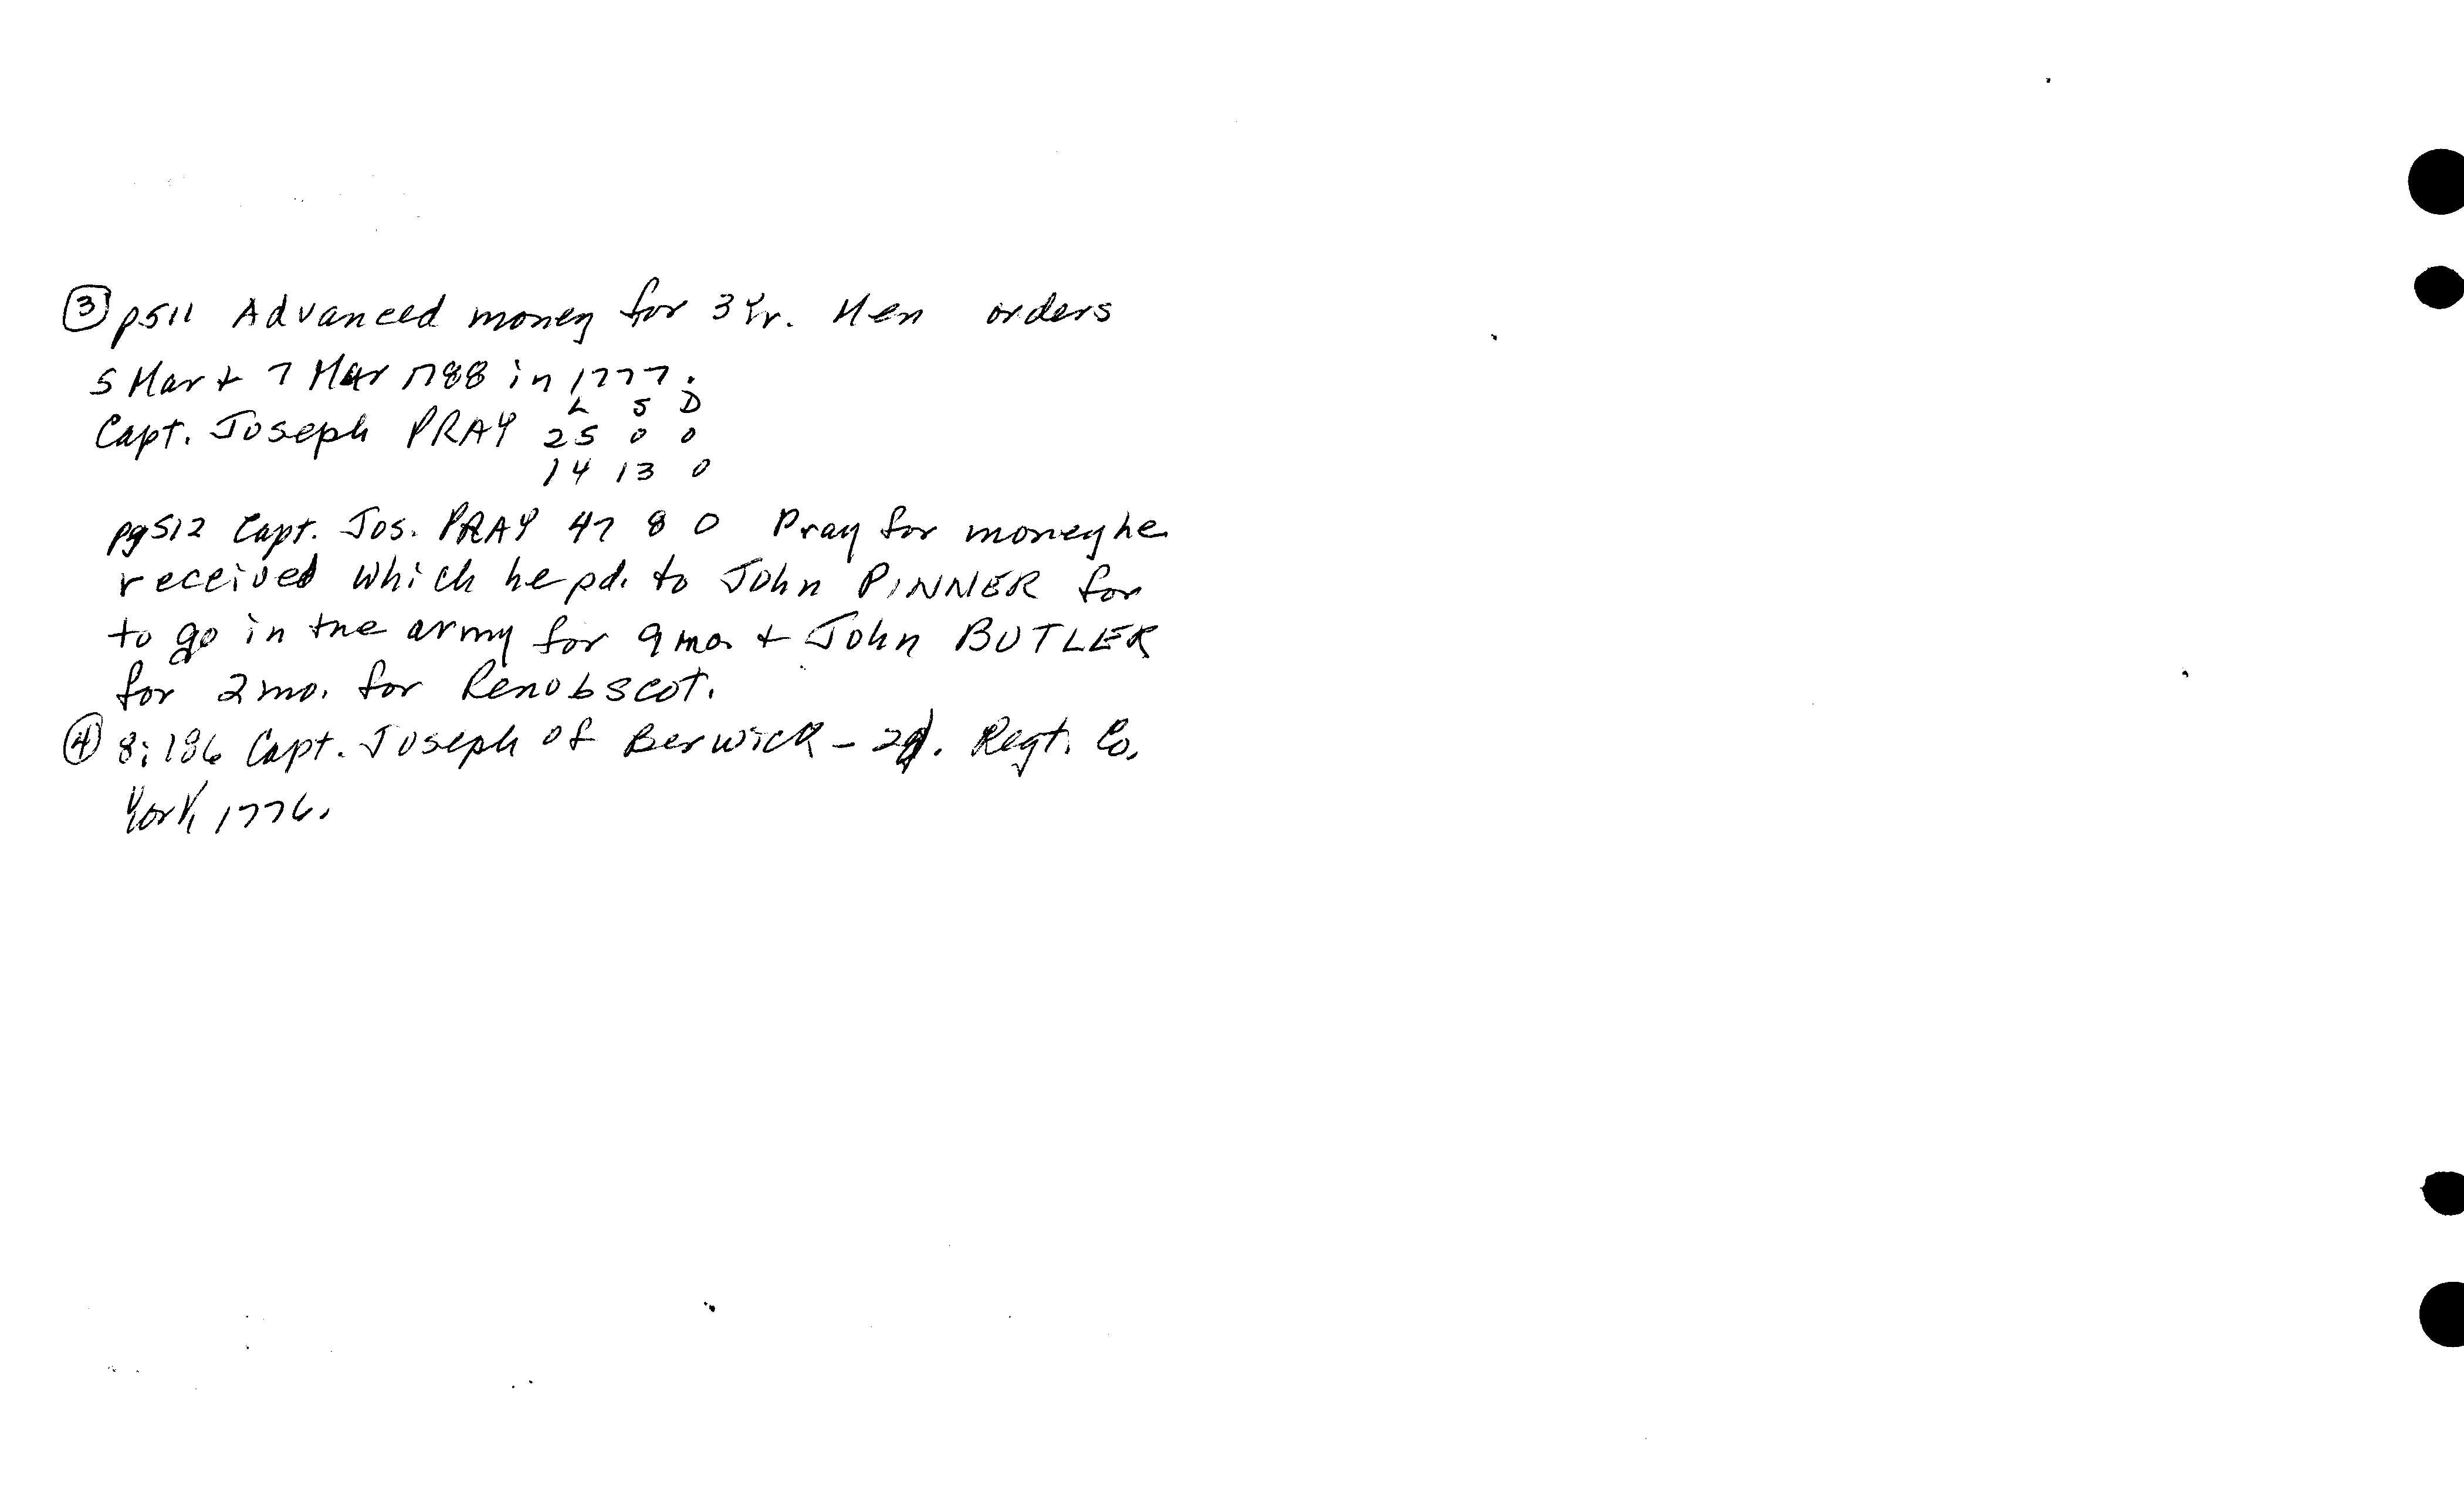 ③ p511 Advanced money for 3 Yr. Men orders
5 Mar + 7 Mar 1788 in 1777.
L S D
Capt. Joseph PRAY 25 0 0
14 13 0
pg512 Capt. Jos. PRAY 47 8 0 Pray for money he
received which he pd. to John PINNER for
to go in the army for 9 mo. + John BUTLER
for 2 mo. for Penobscot.
④ 8:186 Capt. Joseph of Berwick - 2d. Regt. Co.
York 1776.